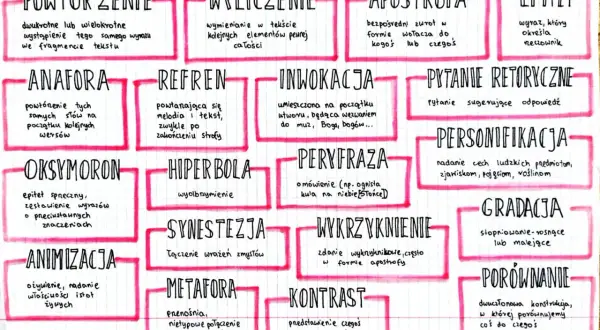 POWTÓRZENIE
dwukrotne lub wielokrotne
wystąpienie tego samego wyrazu
we fragmencie tekstu
WYLICZENIE
wymienianie w tekście
kolejnych elementów pewnej
całości
APOSTROFA
bezpośredni zwrot w
formie wołacza do
kogoś lub czegoś
EPITET
wyraz, który
określa
rzeczownik
ANAFORA
powtórzenie tych
samych słów na
początku kolejnych
wersów
REFREN
powtarzająca się
melodia i tekst,
zwykle po
zakończeniu strofy
INWOKACJA
umieszczona na początku
utworu, będąca wezwaniem
do muz, Boga, bogów...
PYTANIE RETORYCZNE
pytanie sugerujące odpowiedź
OKSYMORON
epitet sprzeczny,
zestawienie wyrazów
o przeciwstawnych
znaczeniach
HIPERBOLA
wyolbrzymienie
PERYFRAZA
omówienie (np. ognista
kula na niebie[słońce])
PERSONIFIKACJA
nadanie cech ludzkich przedmiotom,
zjawiskom, pojęciom, roślinom
SYNESTEZJA
łączenie wrażeń zmysłów
WYKRZYKNIENIE
zdanie wykrzyknikowe, często
w formie apostrofy
GRADACJA
stopniowanie-rosnące
lub malejące
ANIMIZACJA
ożywienie, nadanie
właściwości istot
żywych
METAFORA
przenośnia,
nietypowe połączenie
KONTRAST
przedstawienie czegoś
PORÓWNANIE
dwuczłonowa konstrukcja,
w której porównujemy
coś do czegoś